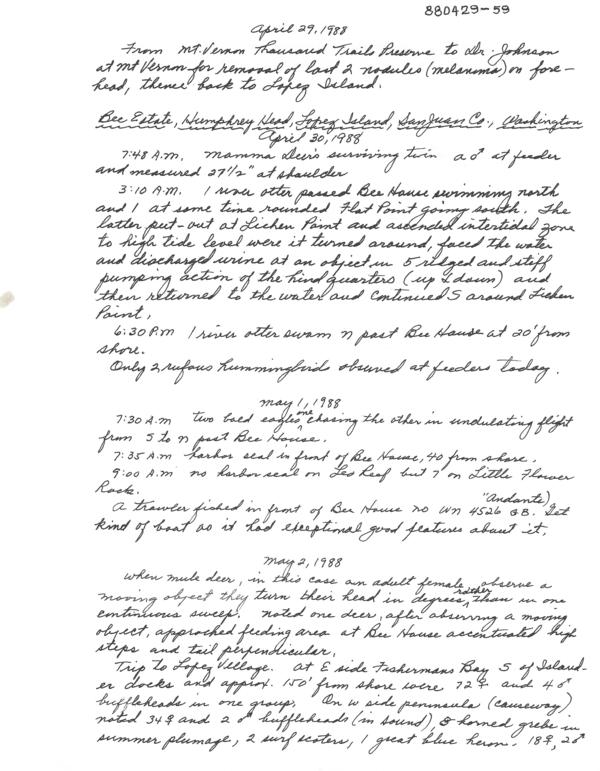 880429-59
April 29, 1988
From Mt. Vernon Thousand Trails Preserve to Dr. Johnson
at Mt Vernon for removal of last 2 nodules (melanoma) on fore-
head, thence back to Lopez Island.
Bee Estate, Humphrey Head, Lopez Island, San Juan Co., Washington
April 30, 1988
7:48 A.M. Mamma Deer's surviving twin a ♂ at feeder
and measured 27 1/2" at shoulder
3:10 A.M. 1 river otter passed Bee House swimming north
and 1 at same time rounded Flat Point going south. The
latter put-out at Lichen Point and ascended intertidal zone
to high tide level were it turned around, faced the water
and discharged urine at an object in 5 and stiff
pumping action of the hind quarters (up & down) and
then returned to the water and continued S around Lichen
Point.
6:30 P.m 1 river otter swam n past Bee House at 20' from
shore.
Only 2 rufous hummingbirds observed at feeders today.
May 1, 1988
7:30 A.m two bald eagles one chasing the other in undulating flight
from S to n past Bee House.
7:35 A.m harbor seal in front of Bee House, 40 from shore.
9:00 A.m no harbor seal on Leo Reef but 7 on Little Flower
Rock.
A trawler fished in front of Bee House no WN 4526 GB. "Andante") Get
kind of boat as it had exceptional good features about it.
May 2, 1988
When mule deer, in this case an adult female, observe a
moving object they turn their head in degrees rather than in one
continuous sweep. noted one deer, after observing a moving
object, approched feeding area at Bee House accentuated high
steps and tail perpendicular.
Trip to Lopez Village. At E side Fishermans Bay S of Island-
er docks and approx. 150' from shore were 72 ♀ and 4 ♂
buffleheads in one group. On W side peninsula (causeway)
noted 34 ♀ and 2 ♂ buffleheads (in sound), horned grebe in
summer plumage, 2 surf scoters, 1 great blue heron. 18 ♀, 2 ♂